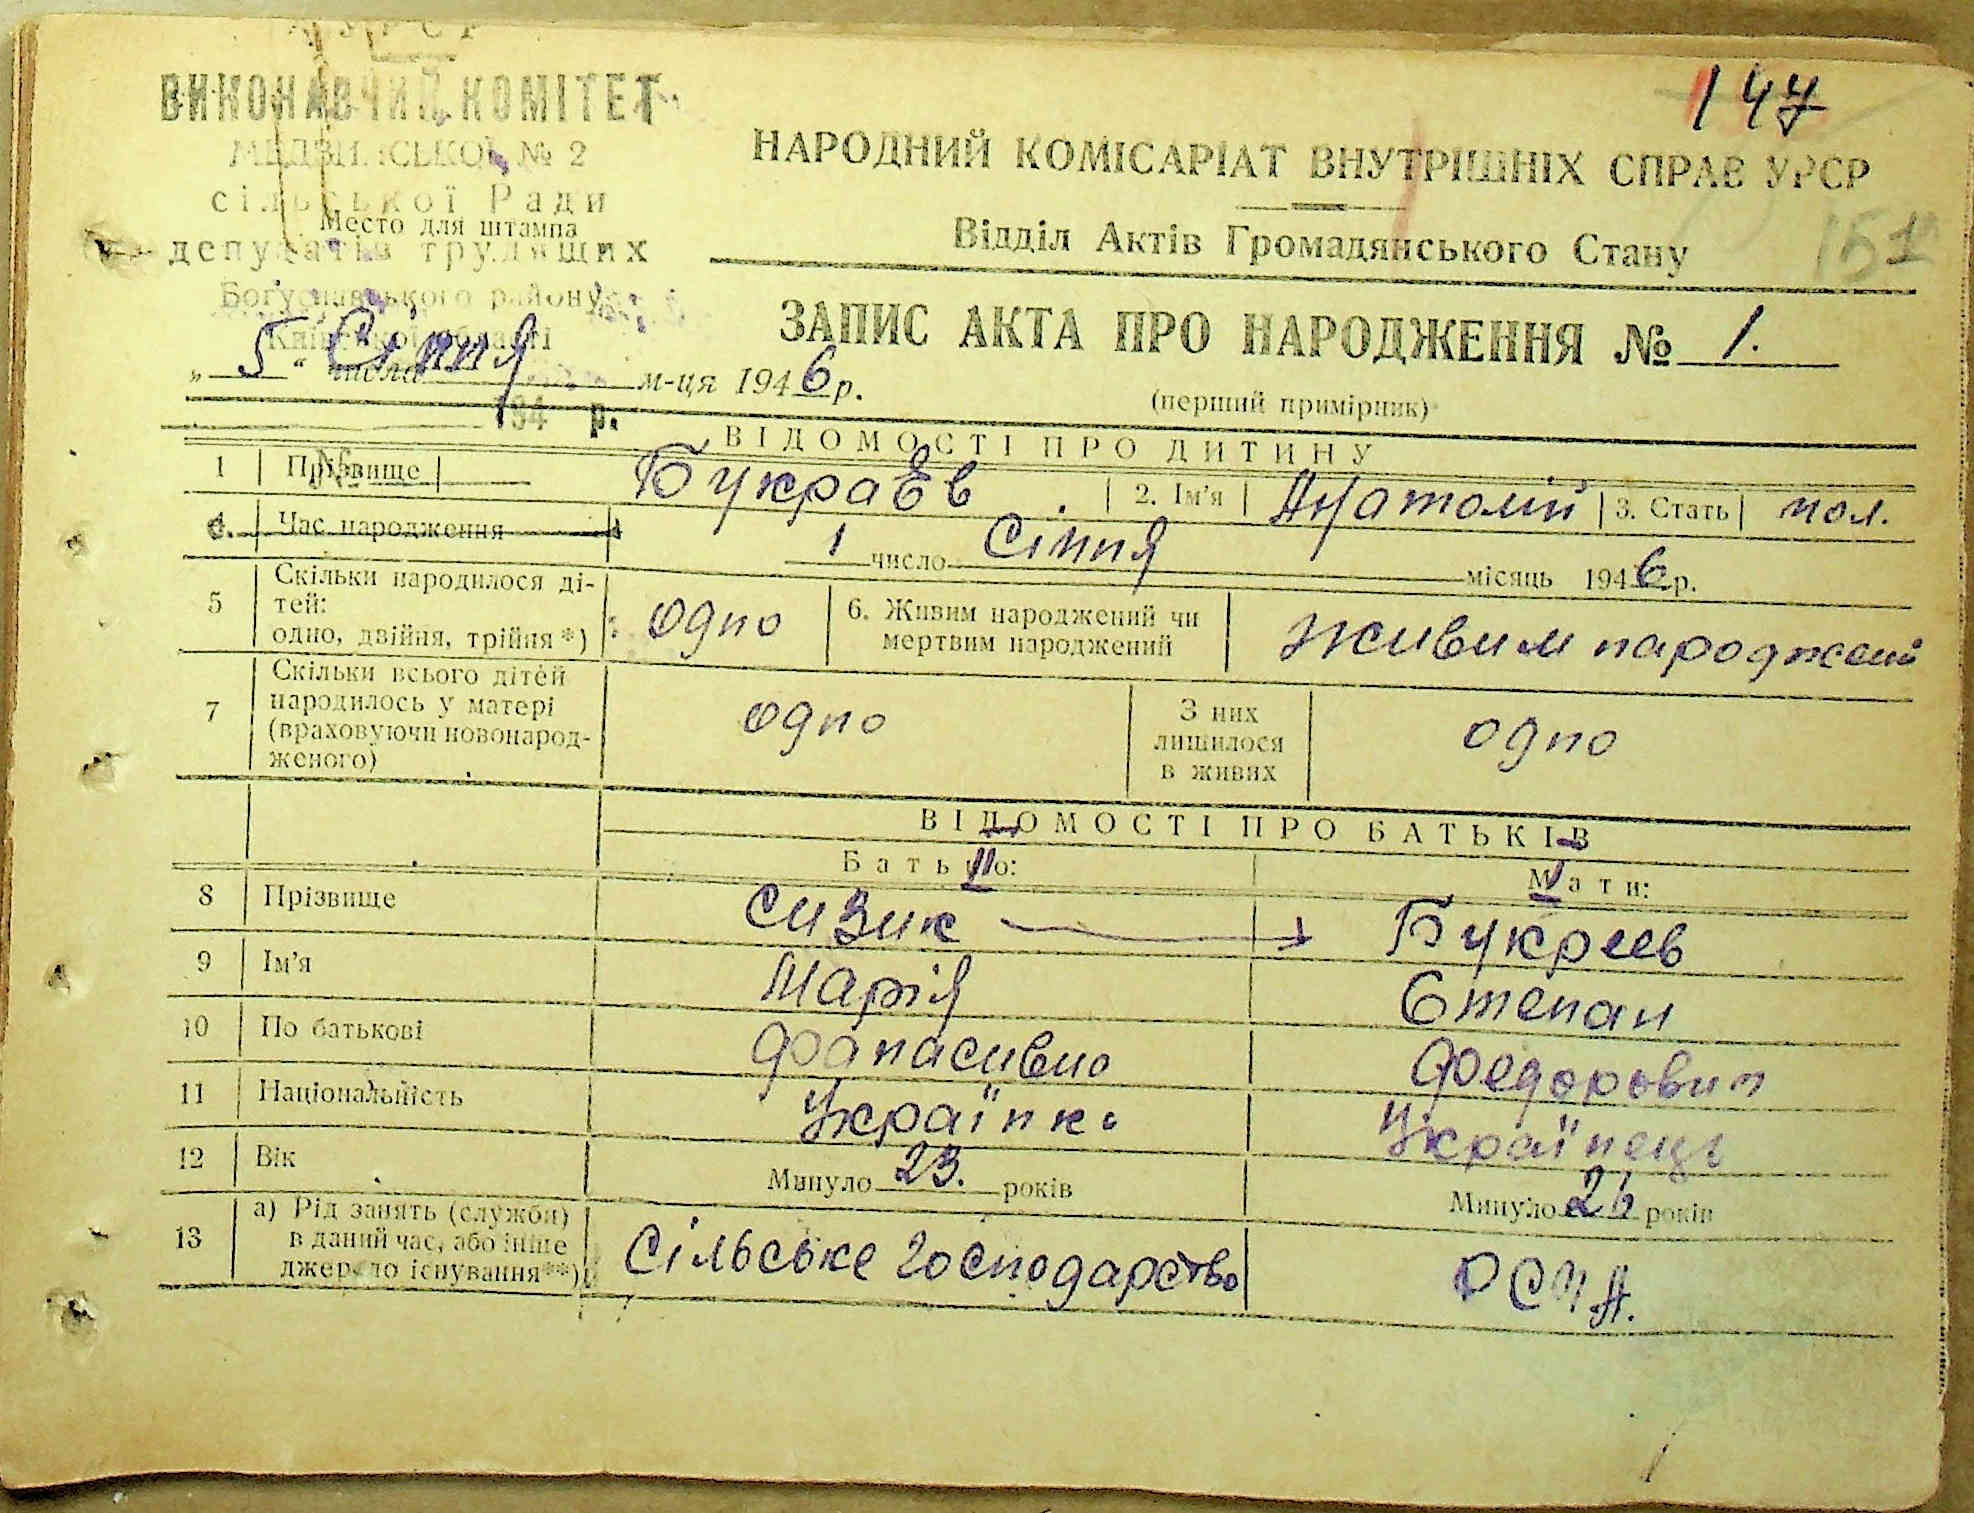 147
ВИКОНАВЧИЙ КОМІТЕТ
№ 2
сільської Ради
Место для штампа
депутатів трудящих
Богуславського району
Київської області
НАРОДНИЙ КОМІСАРІАТ ВНУТРІШНІХ СПРАВ УРСР
Відділ Актів Громадянського Стану
151
ЗАПИС АКТА ПРО НАРОДЖЕННЯ № 1.
„ 5 “ числа Січня м-ця 1946 р.
194 р.
(перший примірник)
ВІДОМОСТІ ПРО ДИТИНУ
1 Прізвище Букраєв 2. Ім'я Анатолій 3. Стать чол.
4. Час народження 1 число Січня місяць 1946 р.
5 Скільки народилося ді-
тей:
одно, двійня, трійня*) одно 6. Живим народжений чи
мертвим народжений Живим народжений
7 Скільки всього дітей
народилось у матері
(враховуючи новонарод-
женого) одно З них
лишилося
в живих одно
ВІДОМОСТІ ПРО БАТЬКІВ
Батько: II Мати: I
8 Прізвище Сизик Букреев
9 Ім'я Марія Степан
10 По батькові Фанасивно Федорович
11 Національність Українка Українець
12 Вік Минуло 23. років Минуло 26 років
13 а) Рід занять (служби)
в даний час, або інше
джерело існування**) Сільське господарство РСЧА.